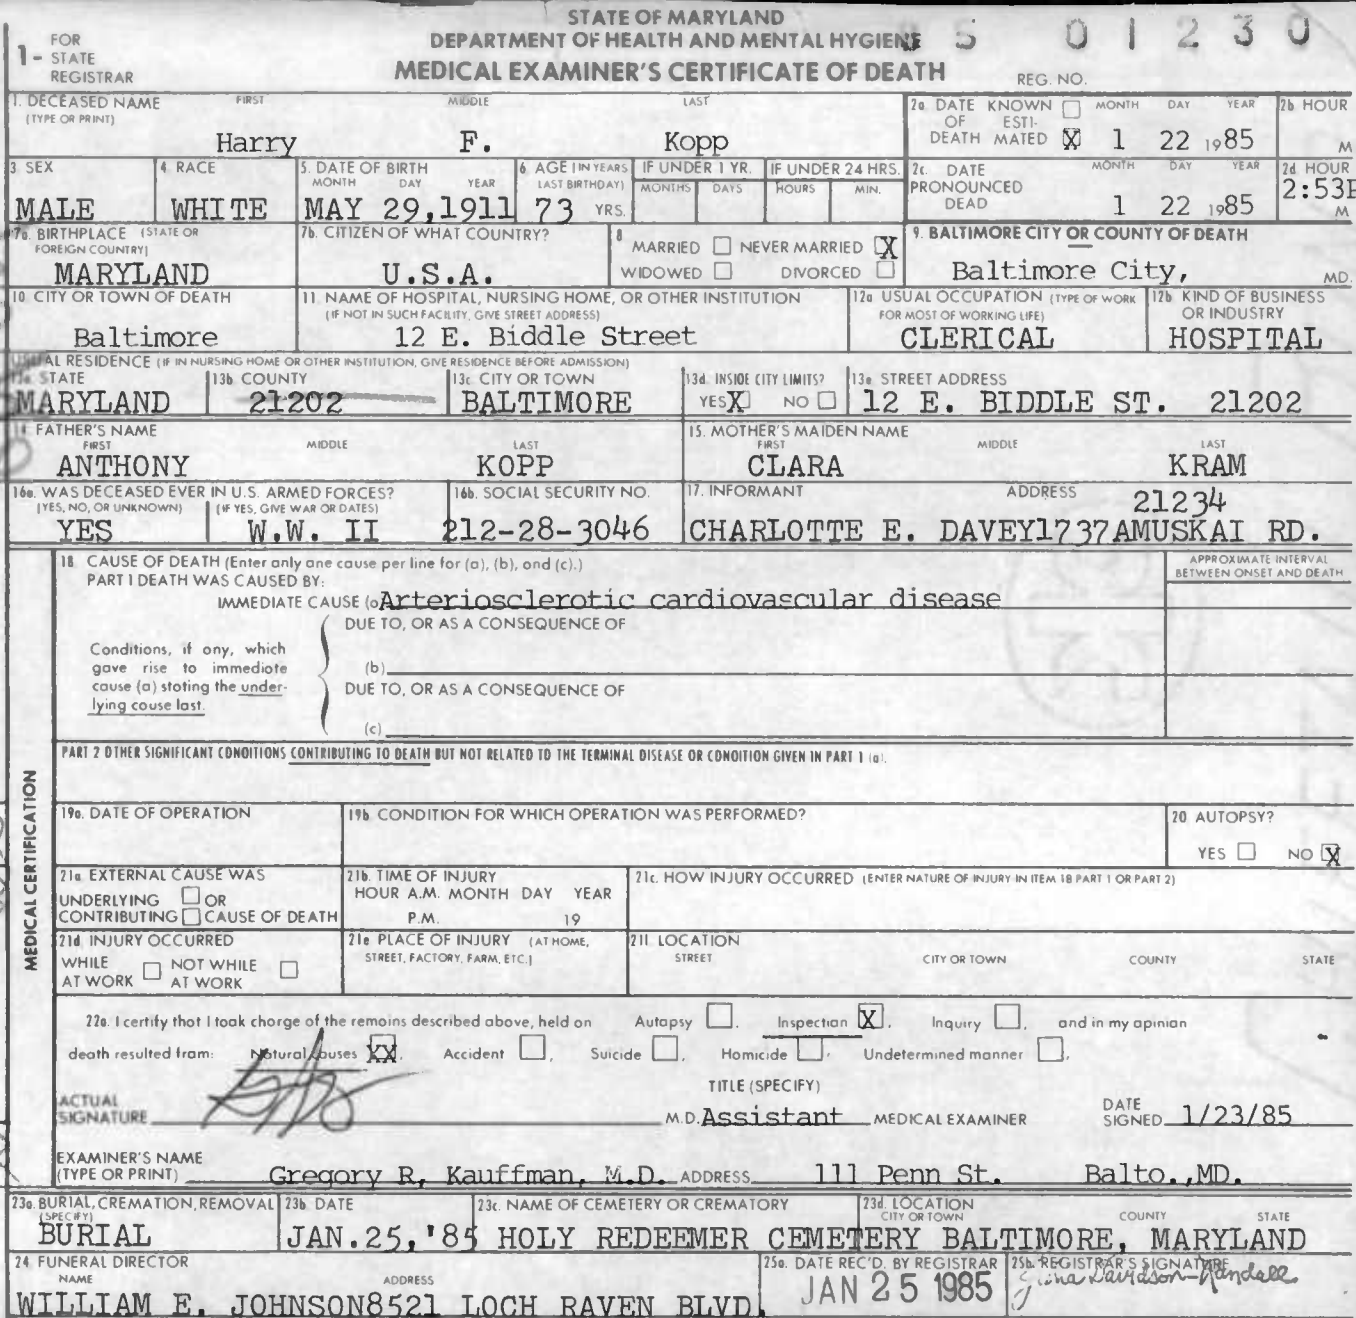 STATE OF MARYLAND
DEPARTMENT OF HEALTH AND MENTAL HYGIENE
MEDICAL EXAMINER'S CERTIFICATE OF DEATH
1- FOR STATE REGISTRAR
REG. NO. 5 01230
1. DECEASED NAME (TYPE OR PRINT) FIRST MIDDLE LAST
Harry F. Kopp
2a. DATE OF DEATH KNOWN ESTIMATED X MONTH DAY YEAR
1 22 1985
2b HOUR M
3 SEX
MALE
4. RACE
WHITE
5. DATE OF BIRTH MONTH DAY YEAR
MAY 29,1911
6. AGE (IN YEARS LAST BIRTHDAY)
73 YRS.
IF UNDER 1 YR. MONTHS DAYS
IF UNDER 24 HRS. HOURS MIN.
2c. DATE PRONOUNCED DEAD MONTH DAY YEAR
1 22 1985
2d HOUR
2:53P M
7a. BIRTHPLACE (STATE OR FOREIGN COUNTRY)
MARYLAND
7b. CITIZEN OF WHAT COUNTRY?
U.S.A.
8 MARRIED NEVER MARRIED X
WIDOWED DIVORCED
9. BALTIMORE CITY OR COUNTY OF DEATH
Baltimore City, MD.
10. CITY OR TOWN OF DEATH
Baltimore
11. NAME OF HOSPITAL, NURSING HOME, OR OTHER INSTITUTION
(IF NOT IN SUCH FACILITY, GIVE STREET ADDRESS)
12 E. Biddle Street
12a USUAL OCCUPATION (TYPE OF WORK FOR MOST OF WORKING LIFE)
CLERICAL
12b. KIND OF BUSINESS OR INDUSTRY
HOSPITAL
USUAL RESIDENCE (IF IN NURSING HOME OR OTHER INSTITUTION, GIVE RESIDENCE BEFORE ADMISSION)
13a STATE
MARYLAND
13b COUNTY
21202
13c CITY OR TOWN
BALTIMORE
13d. INSIDE CITY LIMITS?
YES X NO
13e STREET ADDRESS
12 E. BIDDLE ST. 21202
14 FATHER'S NAME FIRST MIDDLE LAST
ANTHONY KOPP
15. MOTHER'S MAIDEN NAME FIRST MIDDLE LAST
CLARA KRAM
16a. WAS DECEASED EVER IN U.S. ARMED FORCES?
(YES, NO, OR UNKNOWN) (IF YES, GIVE WAR OR DATES)
YES W.W. II
16b. SOCIAL SECURITY NO.
212-28-3046
17. INFORMANT ADDRESS
21234
CHARLOTTE E. DAVEY1737AMUSKAI RD.
MEDICAL CERTIFICATION
18 CAUSE OF DEATH (Enter only one cause per line for (a), (b), and (c).)
PART I DEATH WAS CAUSED BY:
APPROXIMATE INTERVAL BETWEEN ONSET AND DEATH
IMMEDIATE CAUSE (a) Arteriosclerotic cardiovascular disease
DUE TO, OR AS A CONSEQUENCE OF
Conditions, if any, which gave rise to immediate cause (a) stating the underlying cause last.
(b)
DUE TO, OR AS A CONSEQUENCE OF
(c)
PART 2 OTHER SIGNIFICANT CONDITIONS CONTRIBUTING TO DEATH BUT NOT RELATED TO THE TERMINAL DISEASE OR CONDITION GIVEN IN PART 1 (a).
19a. DATE OF OPERATION
19b CONDITION FOR WHICH OPERATION WAS PERFORMED?
20 AUTOPSY?
YES NO X
21a. EXTERNAL CAUSE WAS
UNDERLYING OR
CONTRIBUTING CAUSE OF DEATH
21b. TIME OF INJURY
HOUR A.M. MONTH DAY YEAR
P.M. 19
21c. HOW INJURY OCCURRED (ENTER NATURE OF INJURY IN ITEM 18 PART 1 OR PART 2)
21d INJURY OCCURRED
WHILE AT WORK NOT WHILE AT WORK
21e PLACE OF INJURY (AT HOME, STREET, FACTORY, FARM, ETC.)
21f. LOCATION
STREET CITY OR TOWN COUNTY STATE
22a. I certify that I took charge of the remains described above, held on Autopsy , Inspection X , Inquiry , and in my opinion
death resulted from: Natural causes XX , Accident , Suicide , Homicide , Undetermined manner ,
ACTUAL SIGNATURE
TITLE (SPECIFY)
M.D. Assistant MEDICAL EXAMINER
DATE SIGNED 1/23/85
EXAMINER'S NAME (TYPE OR PRINT) Gregory R. Kauffman, M.D. ADDRESS 111 Penn St. Balto.,MD.
23a. BURIAL, CREMATION, REMOVAL (SPECIFY)
BURIAL
23b DATE
JAN.25,'85
23c. NAME OF CEMETERY OR CREMATORY
HOLY REDEEMER CEMETERY
23d. LOCATION CITY OR TOWN COUNTY STATE
BALTIMORE, MARYLAND
24 FUNERAL DIRECTOR
NAME ADDRESS
WILLIAM E. JOHNSON8521 LOCH RAVEN BLVD.
25a. DATE REC'D. BY REGISTRAR
JAN 25 1985
25b. REGISTRAR'S SIGNATURE
Davidson-Randall